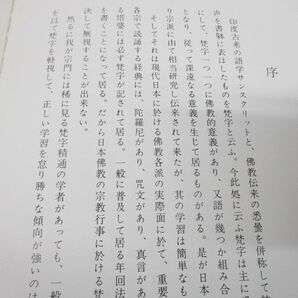 序
印度古来の語字サンスクリットと、佛教伝来の悉曇を併称して
声を書躰に表はしたものを梵字と云ふ。今此処に云ふ梵字は主に
にて、梵字一つ一に佛教的意義があり、又語が幾つか組み合
となり、従つて深遠なる意義を生じて居るものがある。是が日本
り宗派に由て相当研究し伝来されて来たが、其の学習は簡単なも
そしてそれは現代日本に於ける佛教各派の実際面に於て、重要
各宗で読誦する経典には、陀羅尼があり、呪文があり、真言があ
る塔婆には必ず梵字が記されてある。一般に普及して居る年回法
を書てことになつて居る。だから日本佛教の宗教行事に於ける梵
決して無視することが出来ない。
然るに我が宗門には稀に見る梵字精通の学者があつても、一般
を以て梵字を軽視して、正しい学習を怠り勝ちな傾向が強いのは